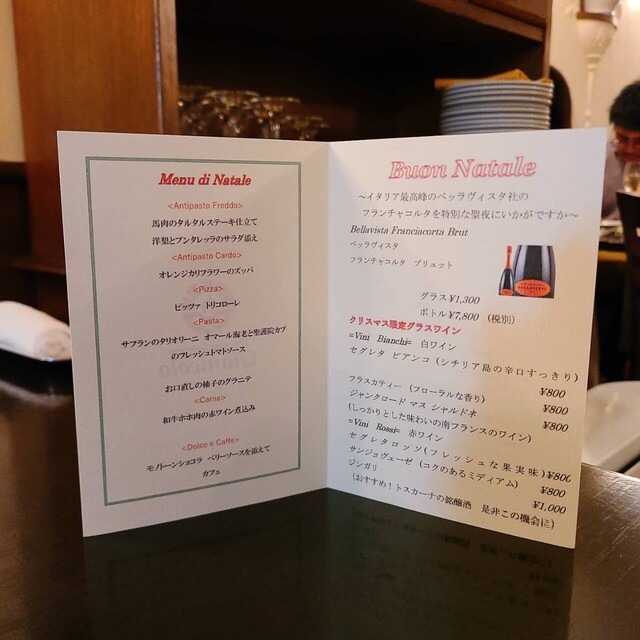 Menu di Natale
<Antipasto Freddo>
馬肉のタルタルステーキ仕立て
洋梨とプンタレッラのサラダ添え
<Antipasto Cardo>
オレンジカリフラワーのズッパ
<Pizza>
ピッツァ トリコローレ
<Pasta>
サフランのタリオリーニ オマール海老と聖護院カブ
のフレッシュトマトソース
お口直しの柚子のグラニテ
<Carne>
和牛ホホ肉の赤ワイン煮込み
<Dolce e Caffe>
モノトーンショコラ ベリーソースを添えて
カフェ
Buon Natale
～イタリア最高峰のベッラヴィスタ社の
フランチャコルタを特別な聖夜にいかがですか～
Bellavista Franciacorta Brut
ベッラヴィスタ
フランチャコルタ ブリュット
グラス¥1,300
ボトル¥7,800 (税別)
クリスマス限定グラスワイン
=Vini Bianchi= 白ワイン
セグレタ ビアンコ (シチリア島の辛口すっきり)
¥800
フラスカティー (フローラルな香り)
¥800
ジャンクロード マス シャルドネ
¥800
(しっかりとした味わいの南フランスのワイン)
=Vini Rossi= 赤ワイン
セグレタロッソ(フレッシュな果実味)¥800
サンジョヴェーゼ (コクのあるミディアム)
¥800
ジンガリ
¥1,000
(おすすめ!トスカーナの銘醸酒 是非この機会に)